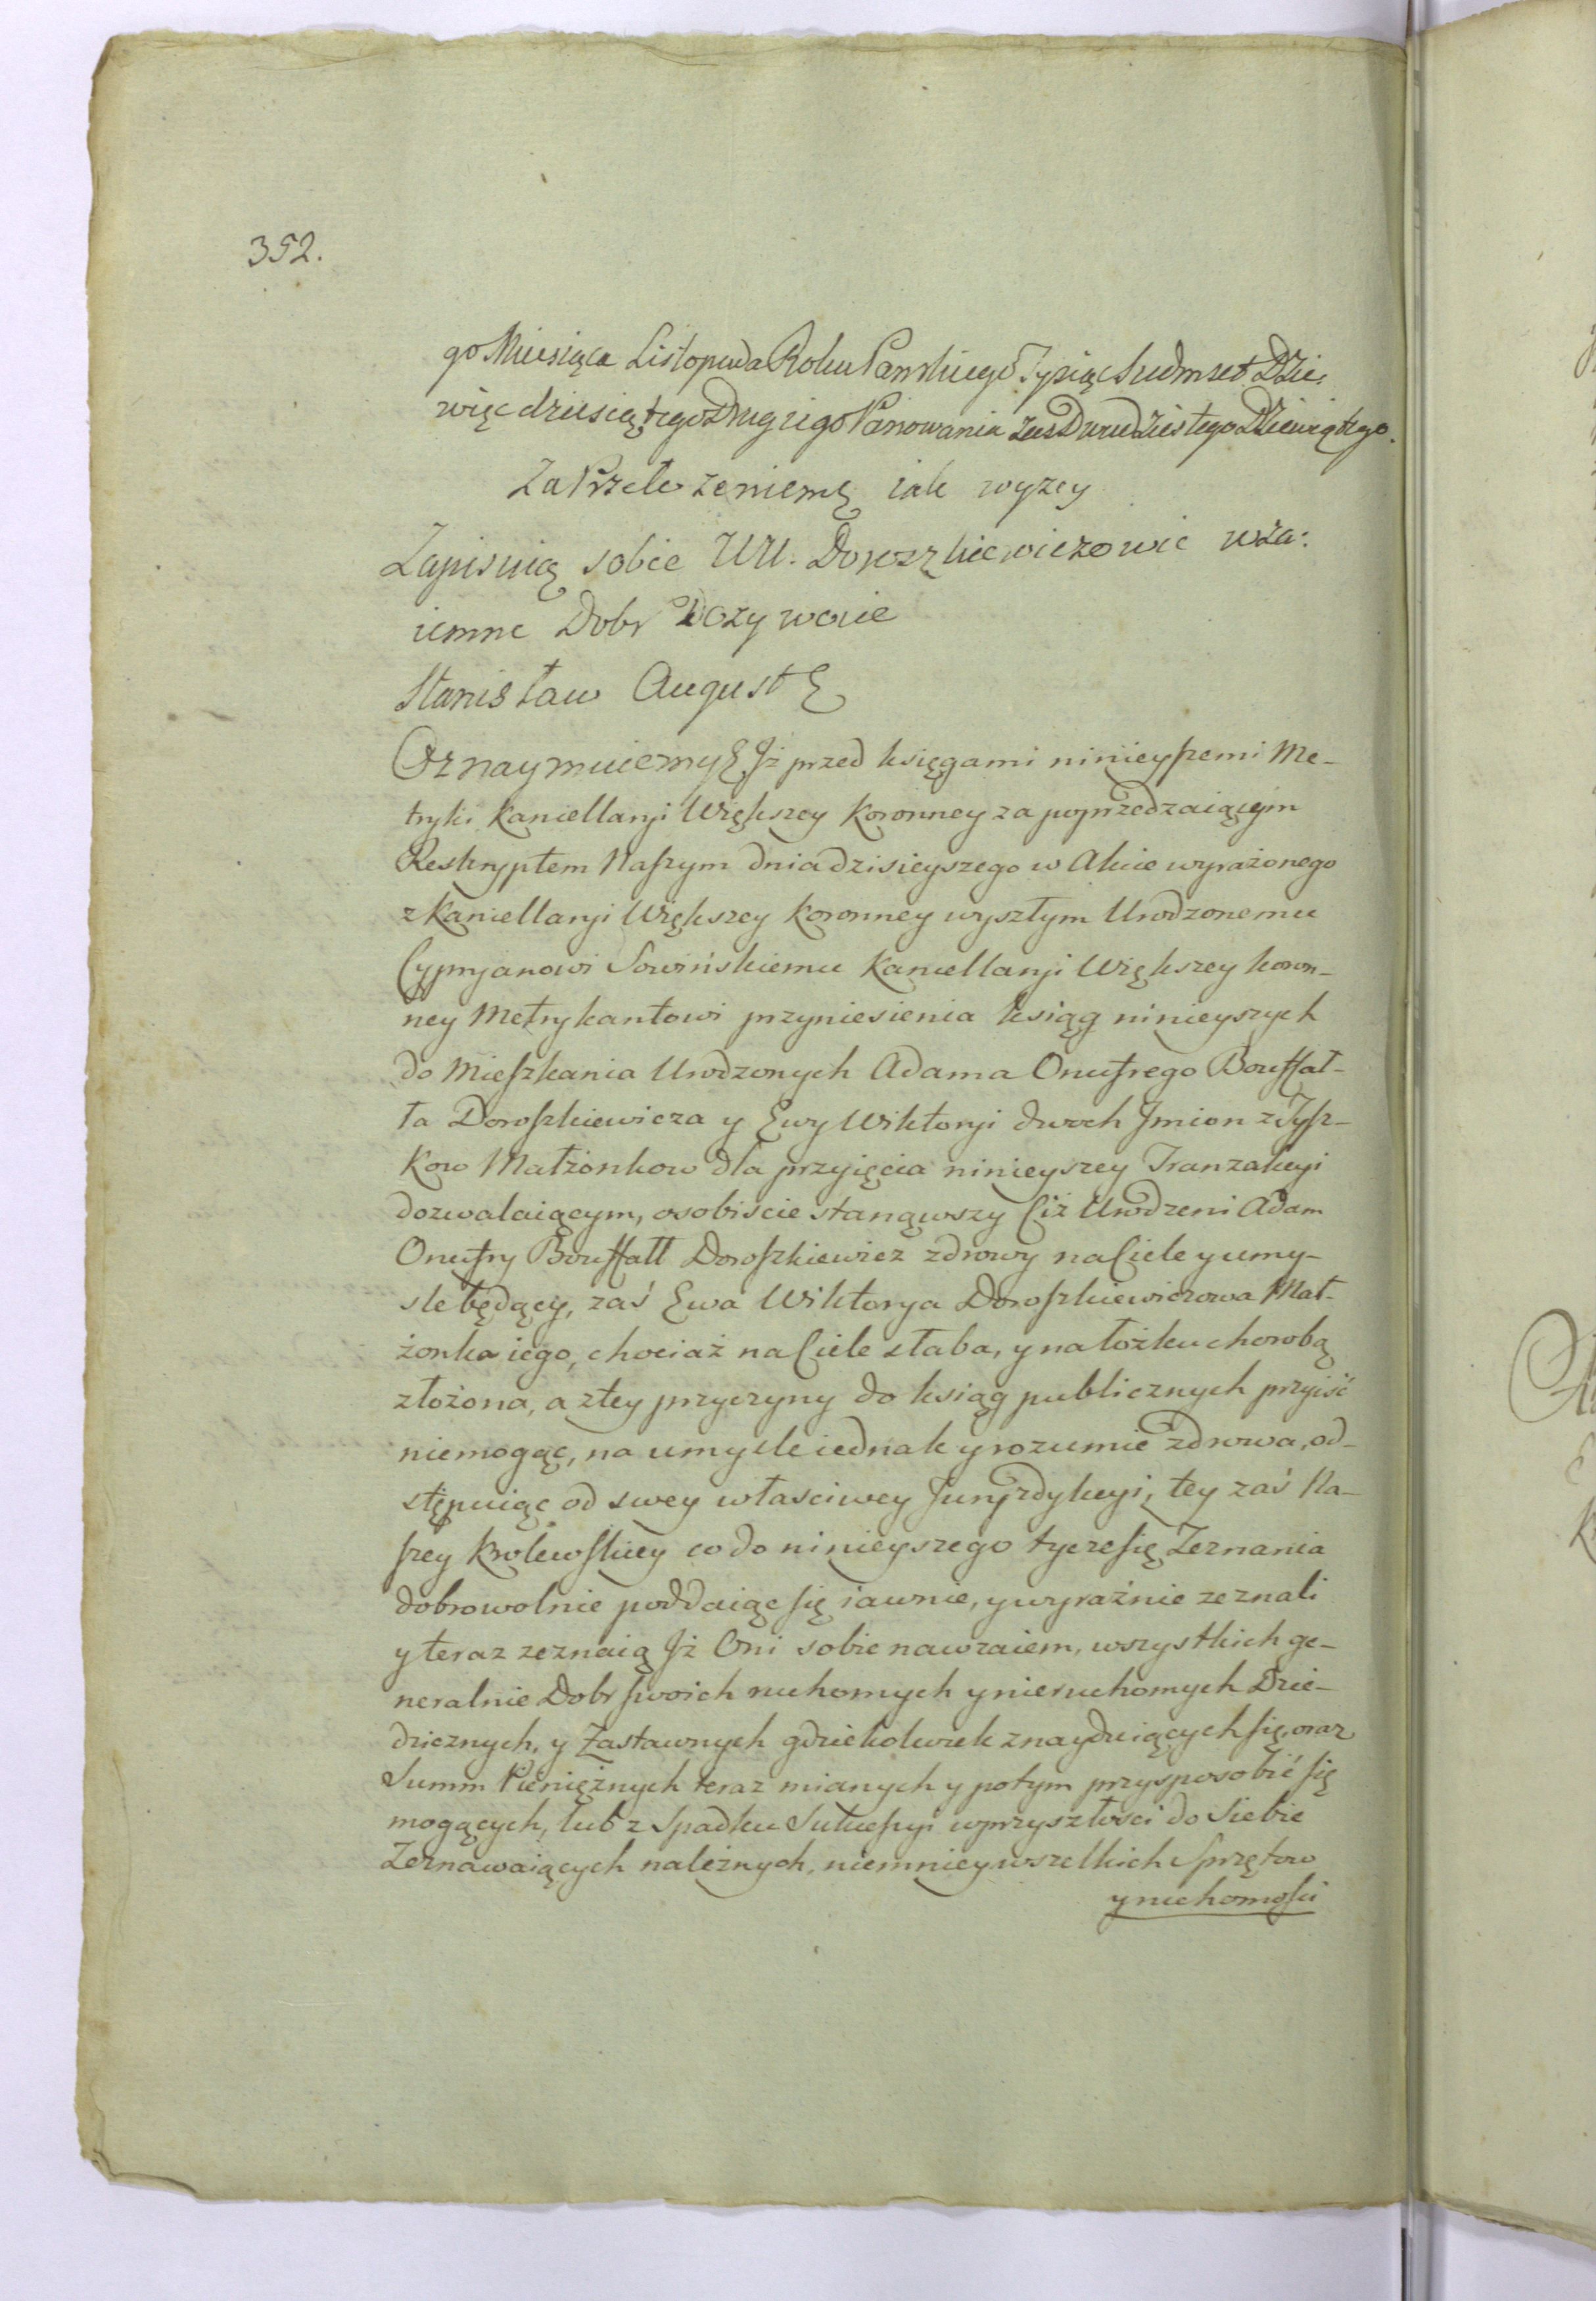 352.
go Miesiąca Listopada Roku Panskiego Tysiąc Siedmset Dzie:
więcdziesiątego Drugiego Panowania zas Dwudziestego Dziewiątego.
Za Przełozeniem iak wyzey
Zapisuią sobie UU. Doroszkiewiczowie wza:
iemne Dobr Dozywocie
Stanisław August
Oznaymuiemy Jż przed księgami ninieyszemi Me-
tryki Kancellaryi Większey Koronney za poprzedzaiącym
Reskryptem Naszym dnia dzisieyszego w Akcie wyrażonego
z Kancellaryi Większey Koronney wyszłym Urodzonemu
Cypryanowi Sowińskiemu Kancellaryi Większey koron-
ney Metrykantowi przyniesienia ksiąg ninieyszych
do Mieszkania Urodzonych Adama Onufrego Bouffał-
ła Doroszkiewicza y Ewy Wiktoryi dwoch Jmion z Tysz-
kow Małżonkow dla przyięcia ninieyszey Tranzakcyi
dozwalaiącym, osobiście stanąwszy Ciż Urodzeni Adam
Onufry Bouffałł Doroszkiewicz zdrowy na Ciele y umy-
sle będący, zaś Ewa Wiktorya Doroszkiewiczowa Mał-
żonka iego, chociaż na Ciele słaba, y na łożku chorobą
złożona, a z tey przyczyny do ksiąg publicznych przyiść
niemogąc, na umysle iednak y rozumie zdrowa, od-
stępuiąc od swey własciwey Juryzdykcyi, tey zaś Na-
szey Krolewskiey co do ninieyszego tycze się Zeznania
dobrowolnie poddaiąc się iawnie, y wyraźnie zeznali
y teraz zeznaią Jż Oni sobie nawzaiem, wszystkich ge-
neralnie Dobr swoich ruchomych y nieruchomych Dzie-
dzicznych, y Zastawnych gdziekolwiek znayduiących się, oraz
Summ Pieniężnych teraz mianych y potym przysposobić się
mogących, lub z Spadku Sukcessyi w przyszłości do Siebie
Zeznawaiących należnych, niemniey wszelkich Sprzętow
y ruchomości